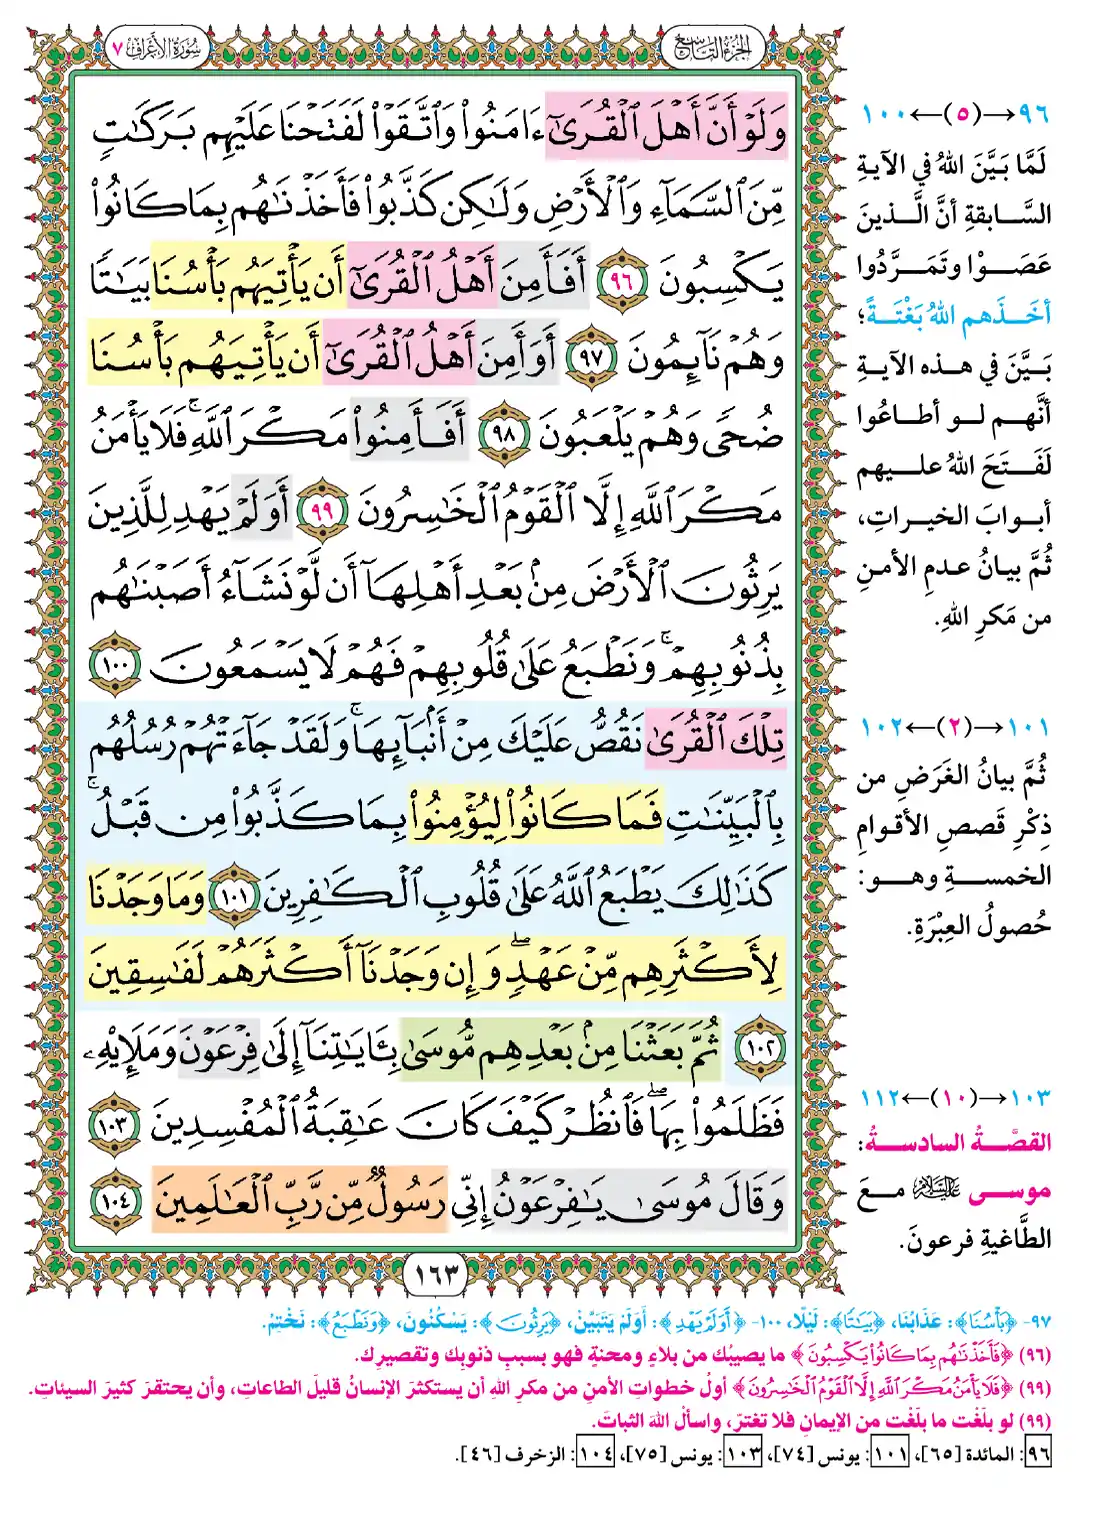 الجزء التاسع
سورة الأعراف ٧
وَلَوْ أَنَّ أَهْلَ ٱلْقُرَىٰٓ ءَامَنُوا۟ وَٱتَّقَوْا۟ لَفَتَحْنَا عَلَيْهِم بَرَكَٰتٍ
مِّنَ ٱلسَّمَآءِ وَٱلْأَرْضِ وَلَٰكِن كَذَّبُوا۟ فَأَخَذْنَٰهُم بِمَا كَانُوا۟
يَكْسِبُونَ ٩٦ أَفَأَمِنَ أَهْلُ ٱلْقُرَىٰٓ أَن يَأْتِيَهُم بَأْسُنَا بَيَٰتًا
وَهُمْ نَآئِمُونَ ٩٧ أَوَأَمِنَ أَهْلُ ٱلْقُرَىٰٓ أَن يَأْتِيَهُم بَأْسُنَا
ضُحًى وَهُمْ يَلْعَبُونَ ٩٨ أَفَأَمِنُوا۟ مَكْرَ ٱللَّهِ ۚ فَلَا يَأْمَنُ
مَكْرَ ٱللَّهِ إِلَّا ٱلْقَوْمُ ٱلْخَٰسِرُونَ ٩٩ أَوَلَمْ يَهْدِ لِلَّذِينَ
يَرِثُونَ ٱلْأَرْضَ مِنۢ بَعْدِ أَهْلِهَآ أَن لَّوْ نَشَآءُ أَصَبْنَٰهُم
بِذُنُوبِهِمْ ۚ وَنَطْبَعُ عَلَىٰ قُلُوبِهِمْ فَهُمْ لَا يَسْمَعُونَ ١٠٠
تِلْكَ ٱلْقُرَىٰ نَقُصُّ عَلَيْكَ مِنْ أَنۢبَآئِهَا ۚ وَلَقَدْ جَآءَتْهُمْ رُسُلُهُم
بِٱلْبَيِّنَٰتِ فَمَا كَانُوا۟ لِيُؤْمِنُوا۟ بِمَا كَذَّبُوا۟ مِن قَبْلُ ۚ
كَذَٰلِكَ يَطْبَعُ ٱللَّهُ عَلَىٰ قُلُوبِ ٱلْكَٰفِرِينَ ١٠١ وَمَا وَجَدْنَا
لِأَكْثَرِهِم مِّنْ عَهْدٍ ۖ وَإِن وَجَدْنَآ أَكْثَرَهُمْ لَفَٰسِقِينَ
١٠٢ ثُمَّ بَعَثْنَا مِنۢ بَعْدِهِم مُّوسَىٰ بِـَٔايَٰتِنَآ إِلَىٰ فِرْعَوْنَ وَمَلَإِي۟هِۦ
فَظَلَمُوا۟ بِهَا ۖ فَٱنظُرْ كَيْفَ كَانَ عَٰقِبَةُ ٱلْمُفْسِدِينَ ١٠٣
وَقَالَ مُوسَىٰ يَٰفِرْعَوْنُ إِنِّى رَسُولٌ مِّن رَّبِّ ٱلْعَٰلَمِينَ ١٠٤
١٦٣
٩٦→(٥)←١٠٠
لَمَّا بَيَّنَ اللهُ في الآيةِ
السَّابقةِ أنَّ الَّذينَ
عَصَوْا وتَمَرَّدُوا
أخَذَهم اللهُ بَغْتَةً؛
بَيَّنَ في هذه الآيةِ
أنَّهم لو أطاعُوا
لَفَتَحَ اللهُ عليهم
أبوابَ الخيراتِ،
ثُمَّ بيانُ عدمِ الأمنِ
من مَكرِ اللهِ.
١٠١→(٢)←١٠٢
ثُمَّ بيانُ الغَرَضِ من
ذِكْرِ قَصصِ الأقوامِ
الخمسةِ وهو:
حُصولُ العِبْرَةِ.
١٠٣→(١٠)←١١٢
القصَّةُ السادسةُ:
موسى عليه السلام معَ
الطَّاغيةِ فرعونَ.
٩٧- ﴿بَأْسُنَا﴾: عَذَابُنَا، ﴿بَيَاتًا﴾: لَيْلًا، ١٠٠- ﴿أَوَلَمْ يَهْدِ﴾: أَوَلَمْ يَتَبَيَّنْ، ﴿يَرِثُونَ﴾: يَسْكُنُونَ، ﴿وَنَطْبَعُ﴾: نَخْتِمُ.
(٩٦) ﴿فَأَخَذْنَٰهُم بِمَا كَانُوا۟ يَكْسِبُونَ﴾ ما يصيبُك من بلاءٍ ومحنةٍ فهو بسببِ ذنوبِك وتقصيرِك.
(٩٩) ﴿فَلَا يَأْمَنُ مَكْرَ ٱللَّهِ إِلَّا ٱلْقَوْمُ ٱلْخَٰسِرُونَ﴾ أولُ خطواتِ الأمنِ من مكرِ اللهِ أن يستكثرَ الإنسانُ قليلَ الطاعاتِ، وأن يحتقرَ كثيرَ السيئاتِ.
(٩٩) لو بلغْت ما بلغْت من الإيمانِ فلا تغترَ، واسألْ اللهَ الثباتَ.
٩٦: المائدة [٦٥]، ١٠١: يونس [٧٤]، ١٠٣: يونس [٧٥]، ١٠٤: الزخرف [٤٦].